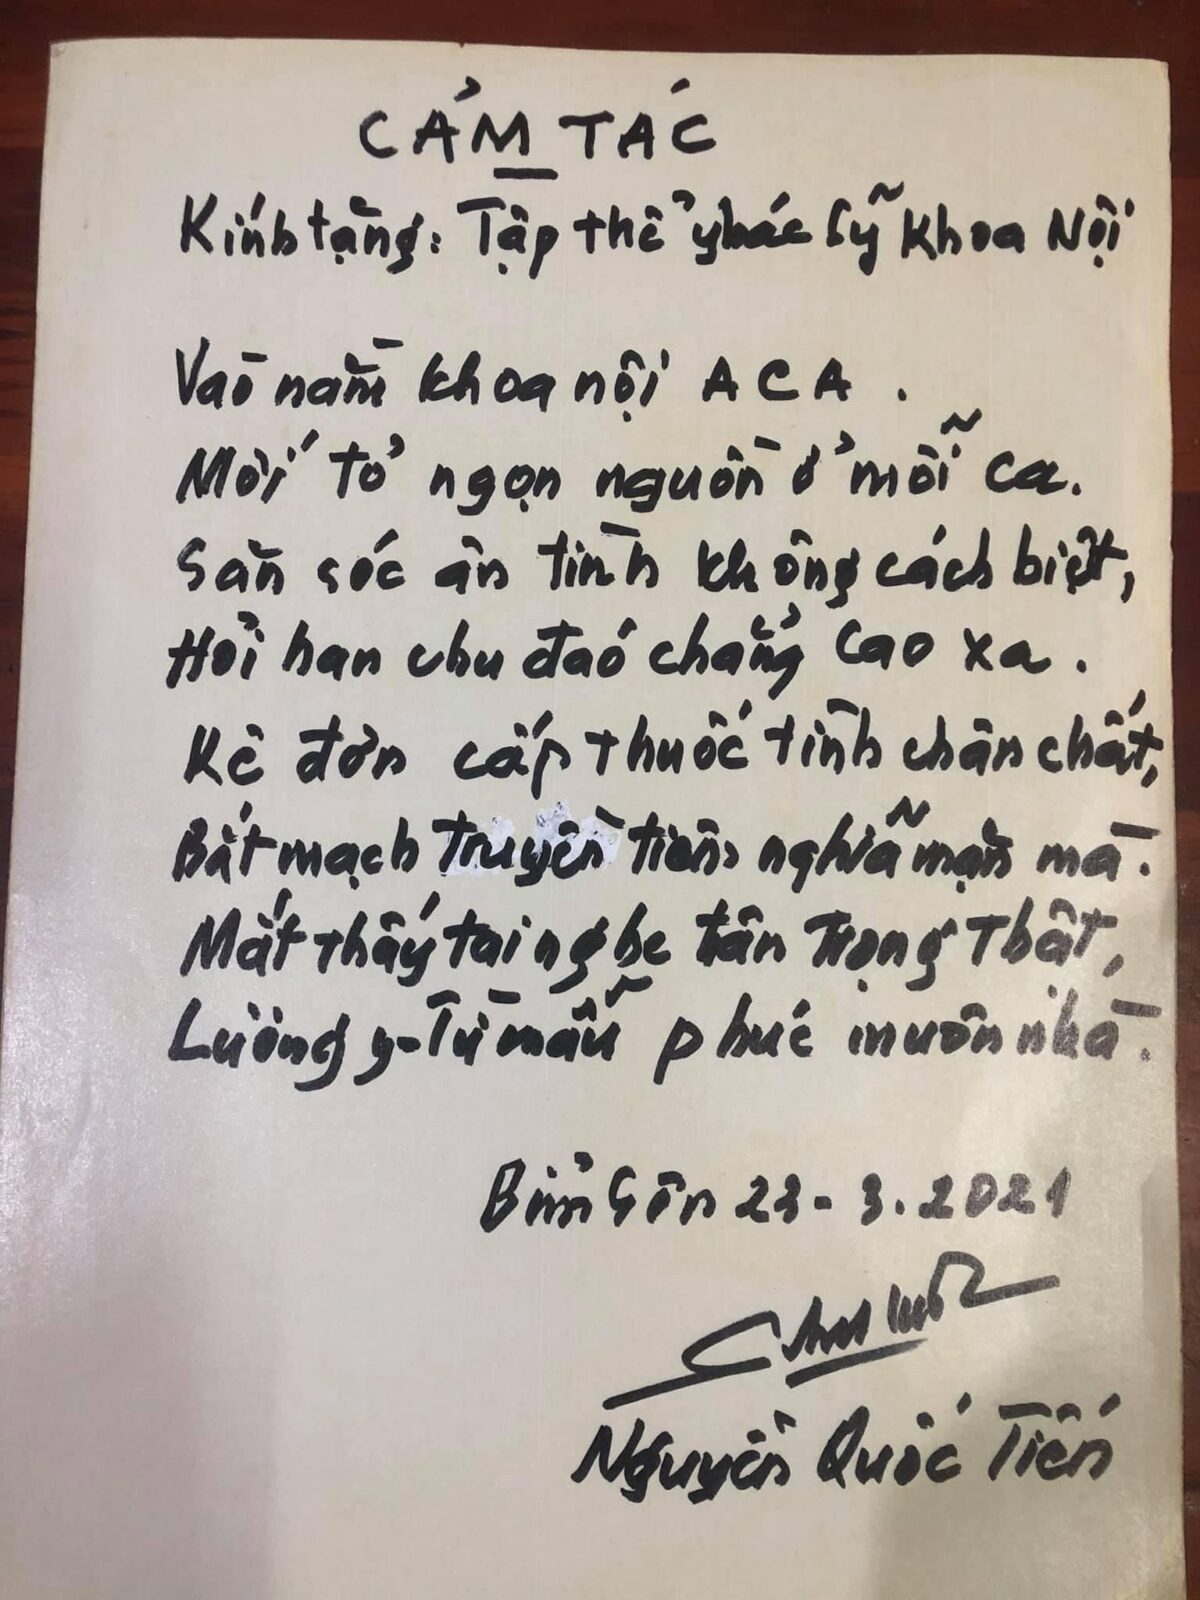 CẢM TÁC
Kính tặng: Tập thể y bác sỹ khoa Nội
Vào nằm khoa nội ACA.
Mới tỏ ngọn nguồn ở mỗi ca.
Săn sóc ân tình không cách biệt,
Hỏi han chu đáo chẳng cao xa.
Kê đơn cấp thuốc tình chân chất,
Bắt mạch truyền tiêm nghĩa mặn mà.
Mắt thấy tai nghe trân trọng thật,
Lương y-Từ mẫu phúc muôn nhà.
Bỉm Sơn 23-3.2021
Nguyễn Quốc Tiến